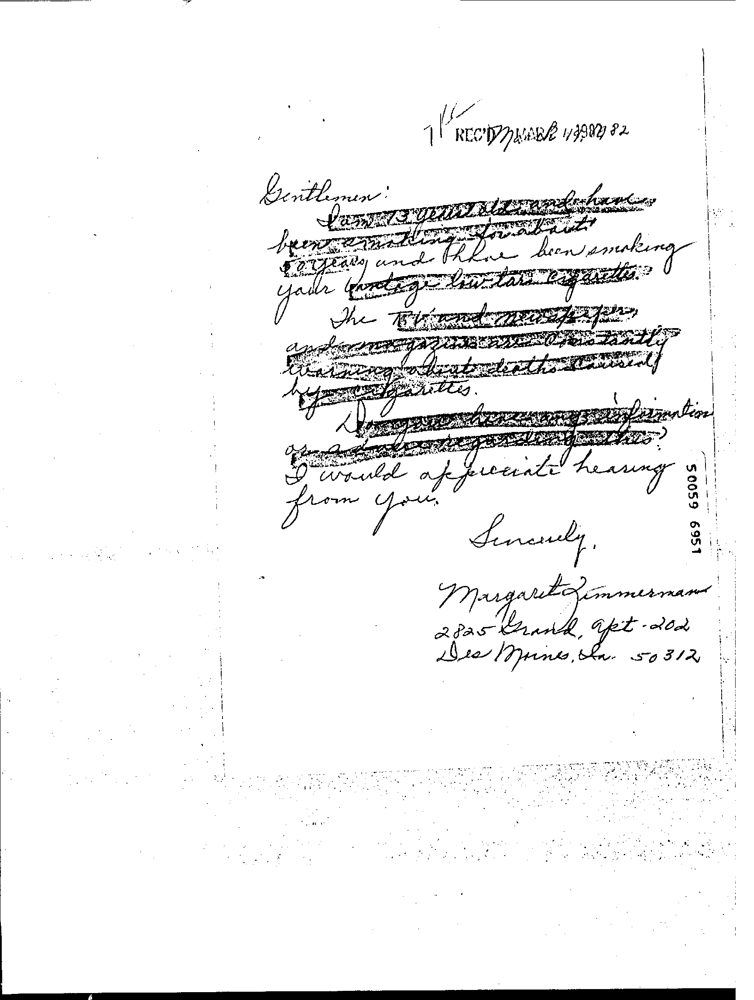 REC'D MAR 1982
Gentlemen:
I am 73 years old and have
been smoking for about
50 years and I have been smoking
your Vantage low tars cigarettes.
The TV and newspapers
and magazines are constantly
warning about deaths caused
by cigarettes.
Do you have any information
or advice regarding this?
I would appreciate hearing
from you.
Sincerely,
Margaret Zimmerman
2825 Grand, Apt. 202
Des Moines, Ia. 50312
50059 6951